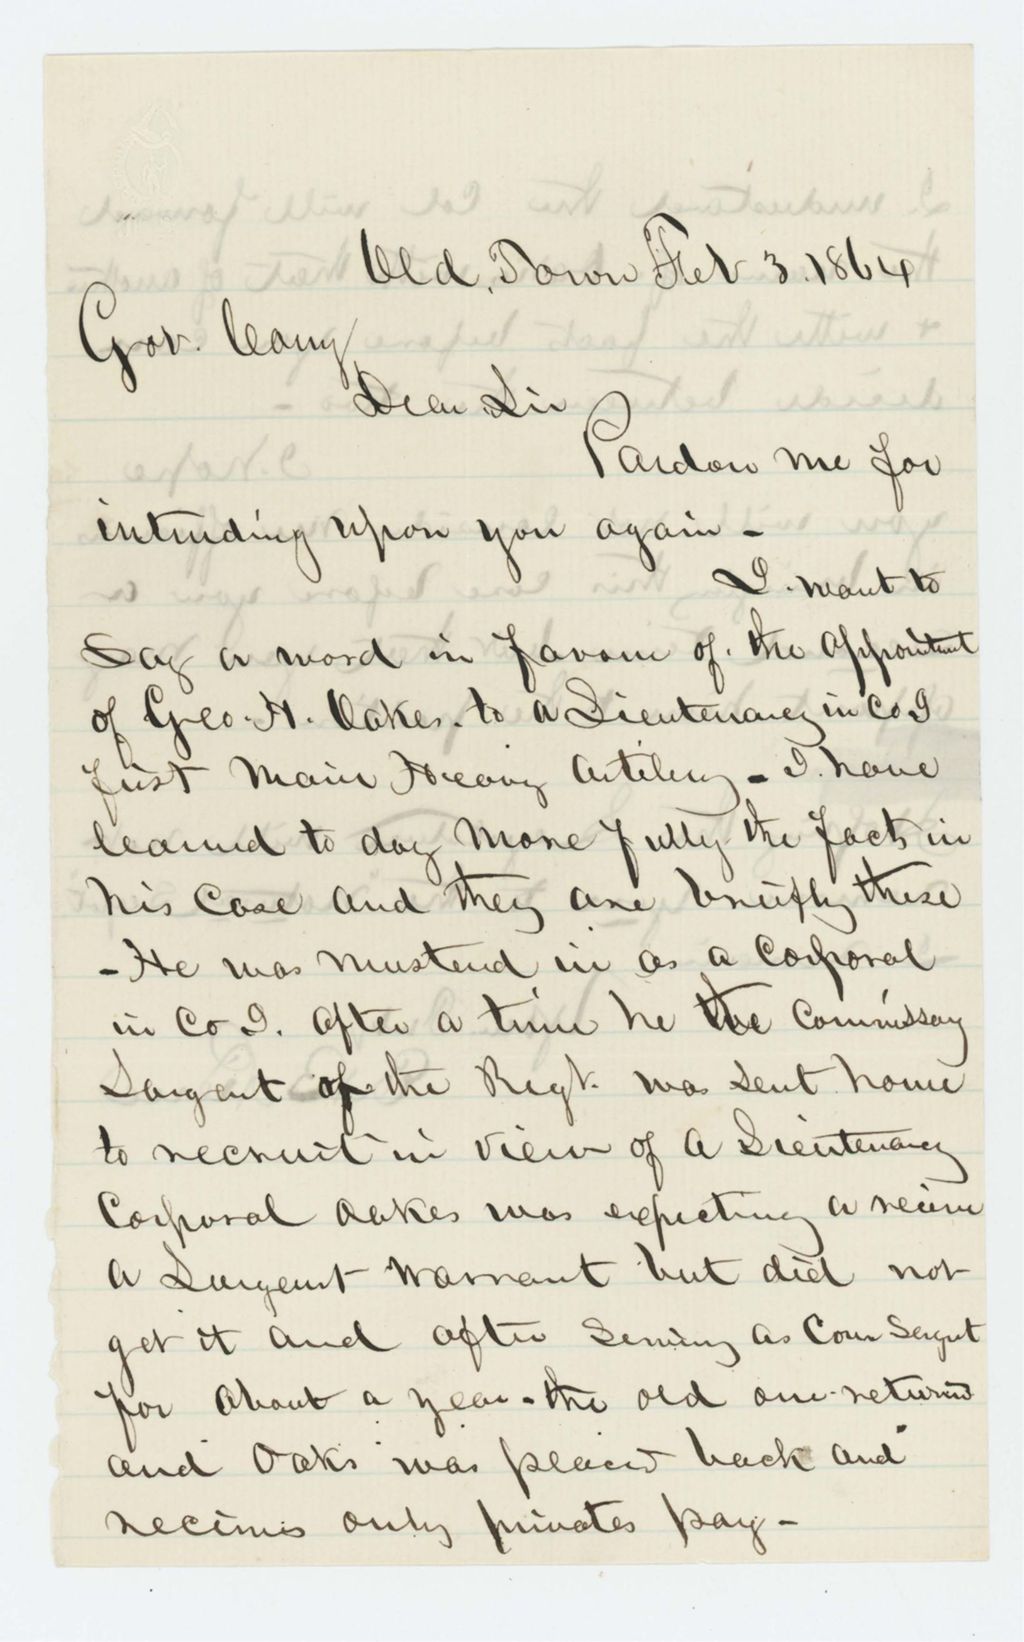 Old Town Feb 3. 1864
Gov. Cony
Dear Sir
Pardon me for
intruding upon you again -
I want to
Say a word in favour of the appointmt
of Geo. H. Oakes. to a Lieutenancy in Co I
first Main Heavy Artilery - I have
learned to day more fully the facts in
his Case and they are brieifly these
- He was musterd in as a Corporal
in Co I. after a time he the Commissary
Sargent of the Regt. was sent home
to recruit in view of a Lieutenancy
Corporal Oakes was expecting a recive
a Sargent warrant but did not
get it and after serving as Com Sergnt
for about a year - the old one returned
and Oaks was placed back and
recives only privates pay -